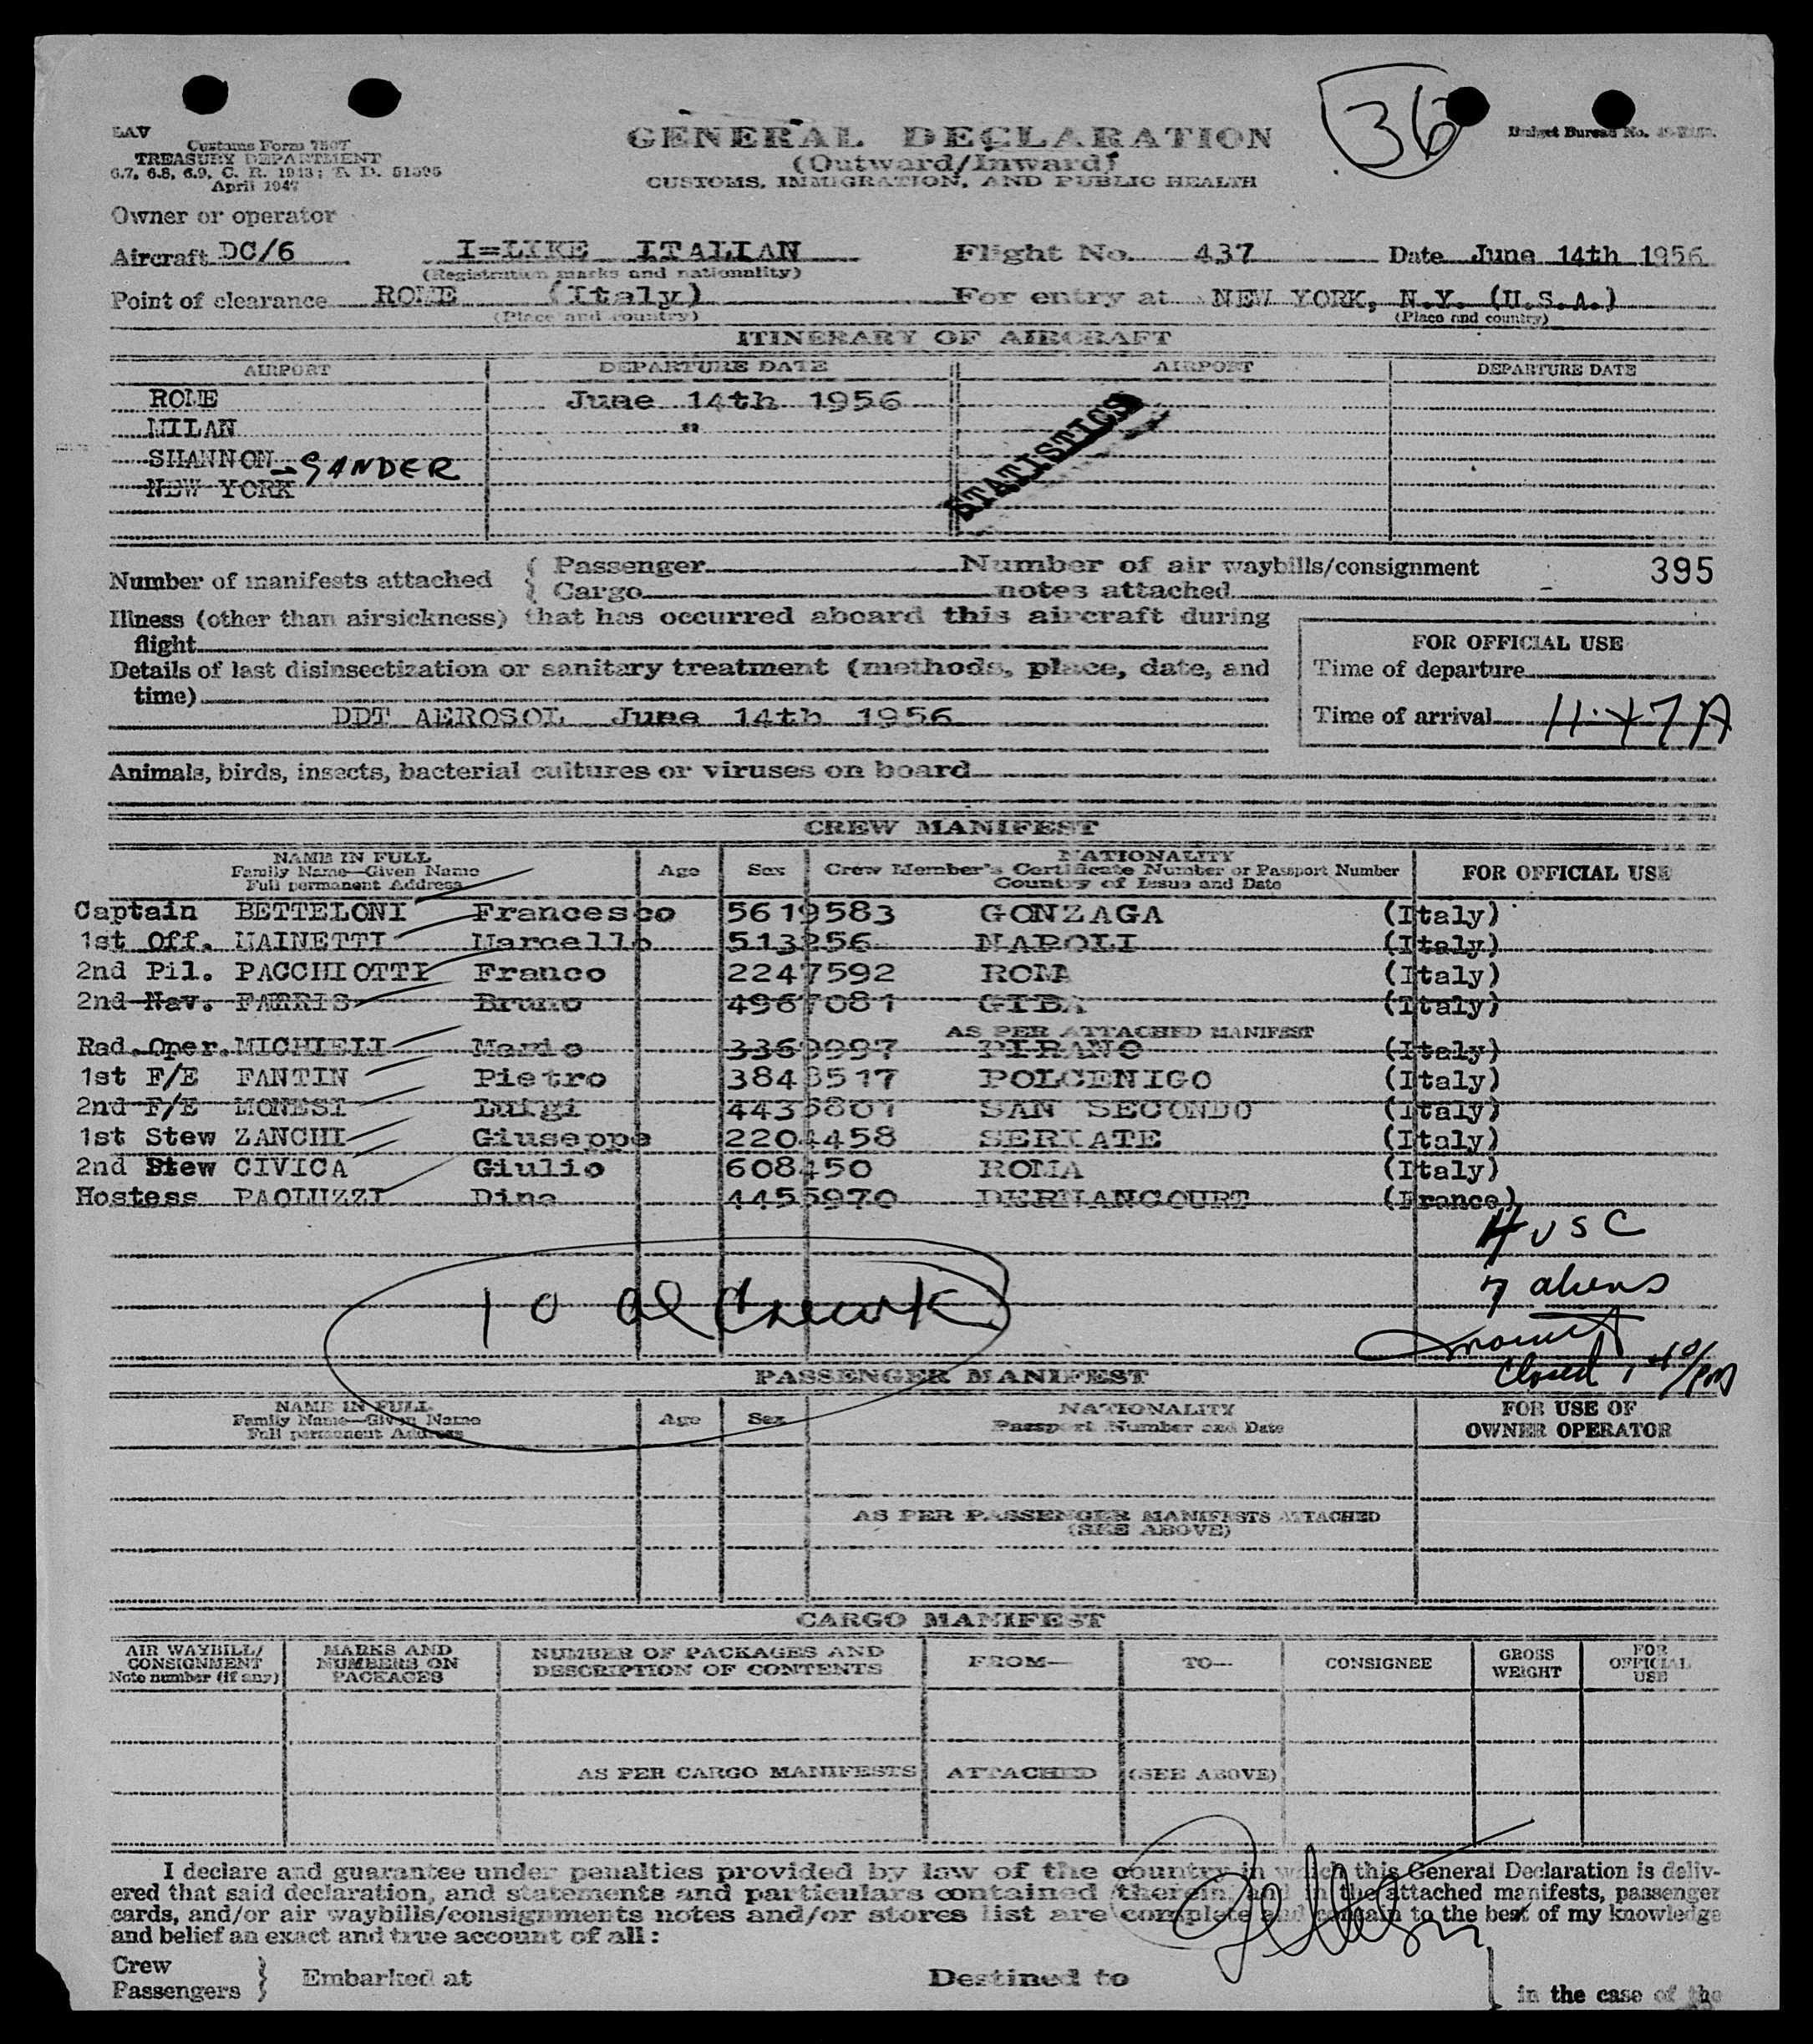 36
LAV
Customs Form 7507
TREASURY DEPARTMENT
6.7, 6.8, 6.9, C. R. 1943; T. D. 51595
April 1947
GENERAL DECLARATION
(Outward/Inward)
CUSTOMS, IMMIGRATION, AND PUBLIC HEALTH
Budget Bureau No.
Owner or operator
Aircraft DC/6 I=LIKE ITALIAN Flight No. 437 Date June 14th 1956
(Registration marks and nationality)
Point of clearance ROME (Italy) For entry at NEW YORK, N.Y. (U.S.A.)
(Place and country) (Place and country)
ITINERARY OF AIRCRAFT
AIRPORT DEPARTURE DATE AIRPORT DEPARTURE DATE
ROME June 14th 1956
MILAN "
SHANNON - GANDER
NEW YORK
STATISTICS
Number of manifests attached { Passenger Number of air waybills/consignment 395
{ Cargo notes attached -
Illness (other than airsickness) that has occurred aboard this aircraft during
flight
Details of last disinsectization or sanitary treatment (methods, place, date, and
time)
DDT AEROSOL June 14th 1956
FOR OFFICIAL USE
Time of departure
Time of arrival 11.47A
Animals, birds, insects, bacterial cultures or viruses on board
CREW MANIFEST
NAME IN FULL Age Sex NATIONALITY FOR OFFICIAL USE
Family Name—Given Name Crew Member's Certificate Number or Passport Number
Full permanent Address Country of Issue and Date
Captain BETTELONI Francesco 5619583 GONZAGA (Italy)
1st Off. MAINETTI Marcello 513256 NAPOLI (Italy)
2nd Pil. PACCHIOTTI Franco 2247592 ROMA (Italy)
2nd Nav. FARRIS Bruno 4967081 GIBA (Italy)
AS PER ATTACHED MANIFEST
Rad.Oper.MICHIELI Mario 3369997 PIRANO (Italy)
1st F/E FANTIN Pietro 3843517 POLCENIGO (Italy)
2nd F/E MONESI Luigi 4435807 SAN SECONDO (Italy)
1st Stew ZANCHI Giuseppe 2204458 SERIATE (Italy)
2nd Stew CIVICA Giulio 608450 ROMA (Italy)
Hostess PAOLUZZI Dina 4455970 DERNANCOURT (France)
4 USC
7 aliens
10 al Crew
Closed
PASSENGER MANIFEST
NAME IN FULL Age Sex NATIONALITY FOR USE OF
Family Name—Given Name Passport Number and Date OWNER OPERATOR
Full permanent Address
AS PER PASSENGER MANIFESTS ATTACHED
(SEE ABOVE)
CARGO MANIFEST
AIR WAYBILL/ MARKS AND NUMBER OF PACKAGES AND FROM— TO— CONSIGNEE GROSS FOR
CONSIGNMENT NUMBERS ON DESCRIPTION OF CONTENTS WEIGHT OFFICIAL
Note number (if any) PACKAGES USE
AS PER CARGO MANIFESTS ATTACHED (SEE ABOVE)
I declare and guarantee under penalties provided by law of the country in which this General Declaration is deliv-
ered that said declaration, and statements and particulars contained therein, and in the attached manifests, passenger
cards, and/or air waybills/consignments notes and/or stores list are complete and contain to the best of my knowledge
and belief an exact and true account of all:
Crew
Passengers } Embarked at Destined to } in the case of the